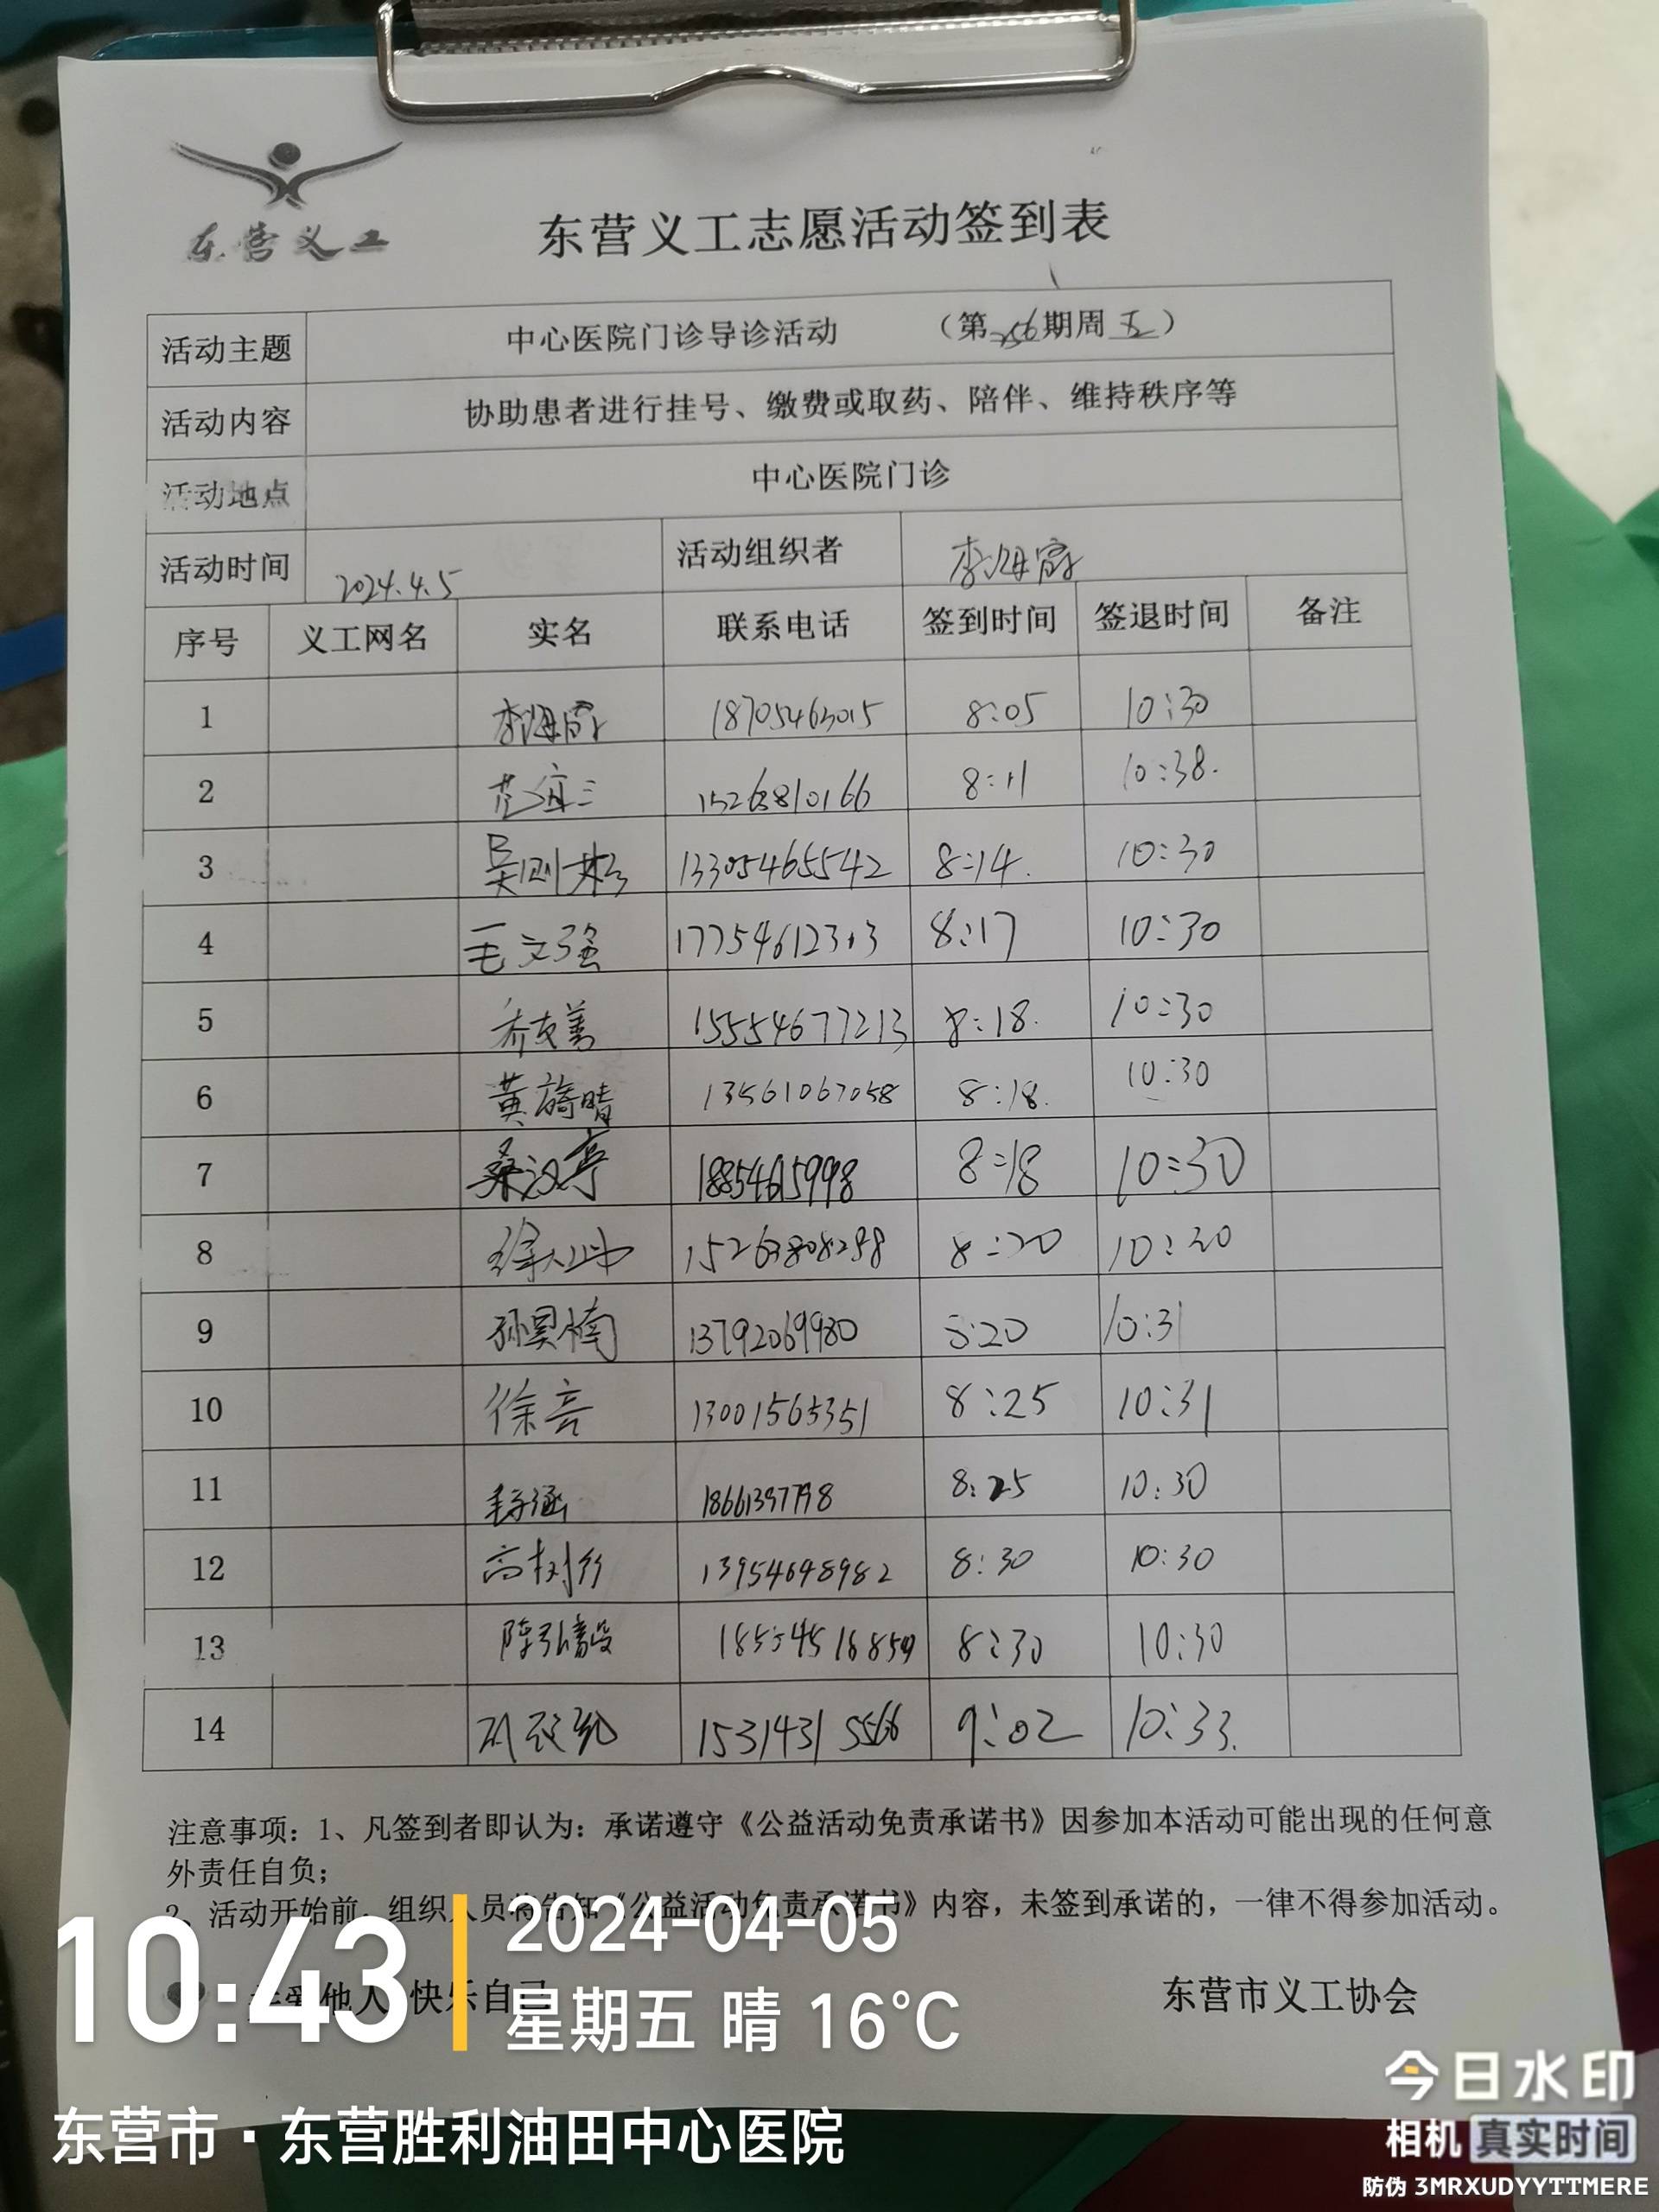 东营义工
东营义工志愿活动签到表
活动主题 中心医院门诊导诊活动 （第256期周五）
活动内容 协助患者进行挂号、缴费或取药、陪伴、维持秩序等
活动地点 中心医院门诊
活动时间 2024.4.5 活动组织者 李海霞
序号 义工网名 实名 联系电话 签到时间 签退时间 备注
1 李海霞 18705463015 8:05 10:30
2 15263810166 8:11 10:38.
3 吴则彬 13305465542 8:14. 10:30
4 毛文强 17754612313 8:17 10:30
5 乔友善 15554677213 8:18. 10:30
6 黄旖晴 13561067058 8:18. 10:30
7 桑汉亭 18854615998 8:18 10:30
8 15263808298 8:20 10:30
9 孙昊楠 13792069980 8:20 10:31
10 徐亮 13001565351 8:25 10:31
11 18661397798 8:25 10:30
12 高树行 13954698982 8:30 10:30
13 陈弘毅 8:30 10:30
14 15314315566 9:02 10:33.
注意事项：1、凡签到者即认为：承诺遵守《公益活动免责承诺书》因参加本活动可能出现的任何意
外责任自负；
2、活动开始前，组织人员将告知《公益活动免责承诺书》内容，未签到承诺的，一律不得参加活动。
关爱他人 快乐自己 东营市义工协会
10:43
2024-04-05
星期五 晴 16°C
东营市·东营胜利油田中心医院
今日水印
相机 真实时间
防伪 3MRXUDYYTTMERE